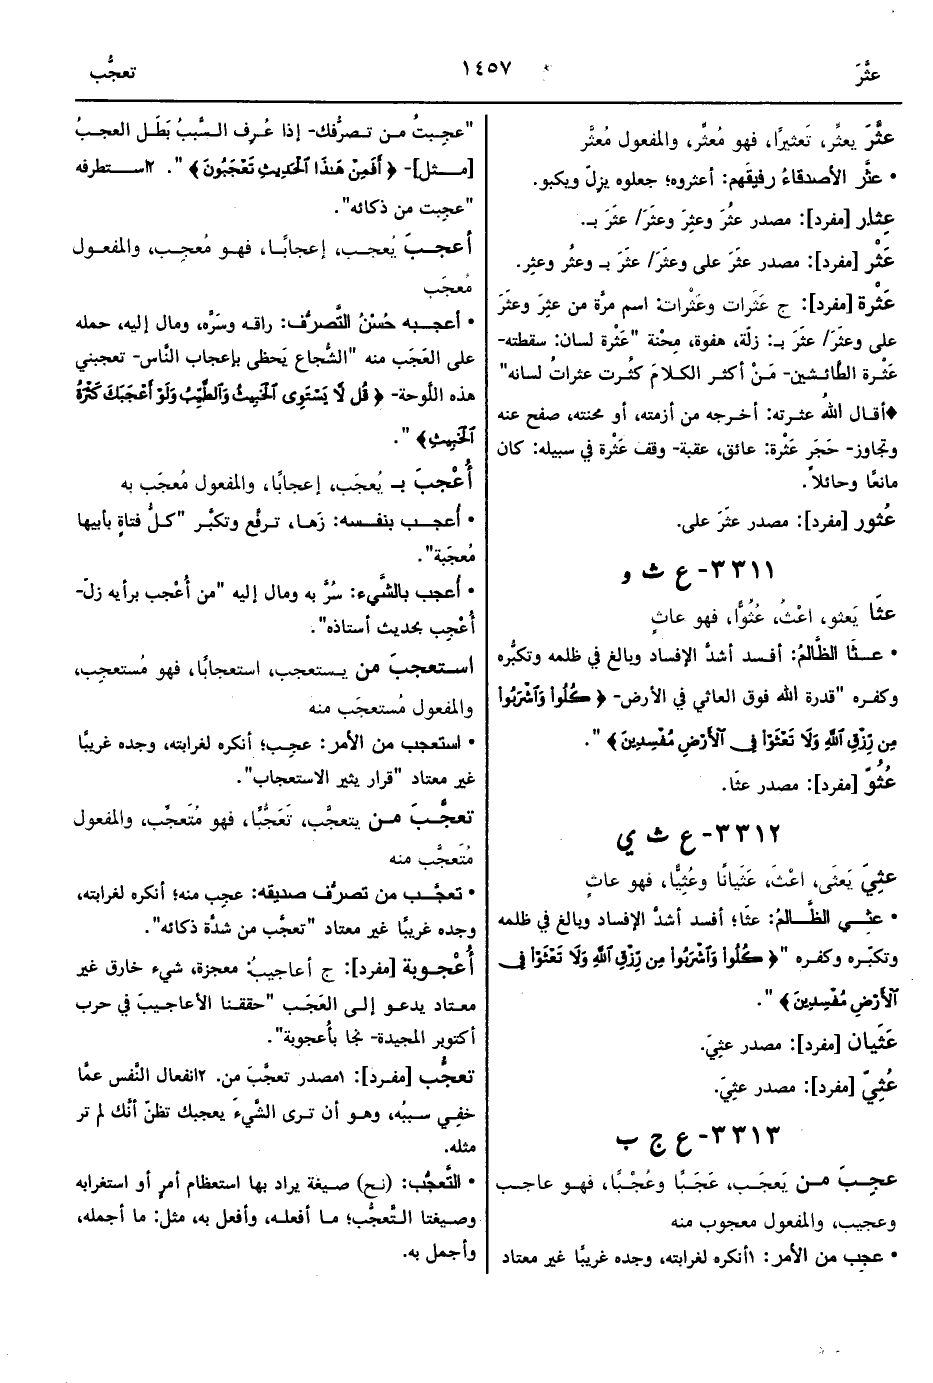 عثَّرَ ١٤٥٧ تعجُّب
عثَّرَ يعثِّر، تَعثيرًا، فهو مُعثِّر، والمفعول مُعثَّر
• عثَّر الأصدقاءُ رفيقَهم: أعثروه؛ جعلوه يزلّ ويكبو.
عِثار [مفرد]: مصدر عثُرَ وعثِرَ وعثَرَ/ عثَرَ بـ.
عَثْر [مفرد]: مصدر عثَرَ على وعثَرَ/ عثَرَ بـ وعثُر وعثِر.
عَثْرة [مفرد]: ج عَثَرات وعَثْرات: اسم مرَّة من عثِرَ وعثَرَ
على وعثَرَ/ عثَرَ بـ: زلّة، هفوة، مِحْنة "عَثْرة لسان: سقطته-
عَثْرة الطَّائشين- مَنْ أكثر الكلامَ كثُرت عثراتُ لسانه"
♦أقال اللهُ عثرته: أخرجه من أزمته، أو محنته، صفح عنه
وتجاوز- حَجَر عَثْرة: عائق، عقبة- وقف عَثْرة في سبيله: كان
مانعًا وحائلاً.
عُثور [مفرد]: مصدر عثَرَ على.
٣٣١١- ع ث و
عثَا يَعثو، اعْثُ، عُثُوًّا، فهو عاثٍ
• عــثَا الظَّالمُ: أفسد أشدّ الإفساد وبالغ في ظلمه وتكبُّره
وكفره "قدرة الله فوق العاثي في الأرض- ﴿ كُلُواْ وَٱشْرَبُواْ
مِن رِّزْقِ ٱللَّهِ وَلَا تَعْثَوْاْ فِى ٱلْأَرْضِ مُفْسِدِينَ ﴾ ".
عُثُوّ [مفرد]: مصدر عثَا.
٣٣١٢- ع ث ي
عثِيَ يَعثَى، اعْثَ، عَثَيانًا وعُثِيًّا، فهو عاثٍ
• عثِــي الظَّــالمُ: عثَا؛ أفسد أشد الإفساد وبالغ في ظلمه
وتكبّره وكفره "﴿ كُلُواْ وَٱشْرَبُواْ مِن رِّزْقِ ٱللَّهِ وَلَا تَعْثَوْاْ فِى
ٱلْأَرْضِ مُفْسِدِينَ ﴾ ".
عَثَيان [مفرد]: مصدر عثِيَ.
عُثِيّ [مفرد]: مصدر عثِيَ.
٣٣١٣- ع ج ب
عجِــبَ مــن يَعجَب، عَجَبًا وعُجْبًا، فهــو عاجــب
وعجيب، والمفعول معجوب منه
• عجِب من الأمر: ١أنكره لغرابته، وجده غريبًا غير معتاد
"عجِبتُ مـن تـصرُّفك- إذا عُـرِف الـسَّببُ بَطَـل العجـبُ
[مـــثل]- ﴿ أَفَمِنْ هَـٰذَا ٱلْحَدِيثِ تَعْجَبُونَ ﴾ ". ٢اســـتطرفه
"عجِبت من ذكائه".
أعجــبَ يُعجــب، إعجابًــا، فهــو مُعجِــب، والمفعــول
مُعجَب
• أعجـبه حُسْنُ التَّصرُّف: راقه وسَرَّه، ومال إليه، حمله
على العَجَب منه "الشُّجاع يَحظى بإعجاب النَّاس- تعجبني
هذه اللَّوحة- ﴿ قُل لَّا يَسْتَوِى ٱلْخَبِيثُ وَٱلطَّيِّبُ وَلَوْ أَعْجَبَكَ كَثْرَةُ
ٱلْخَبِيثِ﴾ ".
أُعْجِبَ بـ يُعجَب، إعجابًا، والمفعول مُعجَب به
• أُعجـب بنفـسه: زَهـا، تـرفَّع وتكبَّـر "كـلُّ فتاةٍ بأبيها
مُعجَبة".
• أُعجب بالشَّيء: سُرَّ به ومال إليه "من أُعْجب برأيه زلّ-
أُعْجِب بحديث أستاذه".
استعجبَ من يستعجب، استعجابًا، فهو مُستعجِب،
والمفعول مُستعجَب منه
• استعجب من الأمر: عجِب؛ أنكره لغرابته، وجده غريبًا
غير معتاد "قرار يثير الاستعجاب".
تعجَّـبَ مـن يتعجَّب، تَعَجُّبًا، فهو مُتَعجِّب، والمفعول
مُتَعجَّب منه
• تعجَّـب من تصرُّف صديقه: عجِب منه؛ أنكره لغرابته،
وجده غريبًا غير معتاد "تعجَّب من شدَّة ذكائه".
أُعْجوبة [مفرد]: ج أعاجيبُ: معجزة، شيء خارق غير
معتاد يدعو إلى العَجَب "حققنا الأعاجيبَ في حرب
أكتوبر المجيدة- نجا بأُعجوبة".
تعجُّب [مفرد]: ١مصدر تعجَّبَ من. ٢انفعال النَّفس عمَّا
خفِي سببُه، وهو أن ترى الشَّيءَ يعجبك تظنّ أنَّك لم تر
مثله.
• التَّعجُّب: (نح) صيغة يراد بها استعظام أمرٍ أو استغرابه
وصيغتا التَّعجُّب؛ ما أفعله، وأفعل به، مثل: ما أجمله،
وأجمل به.